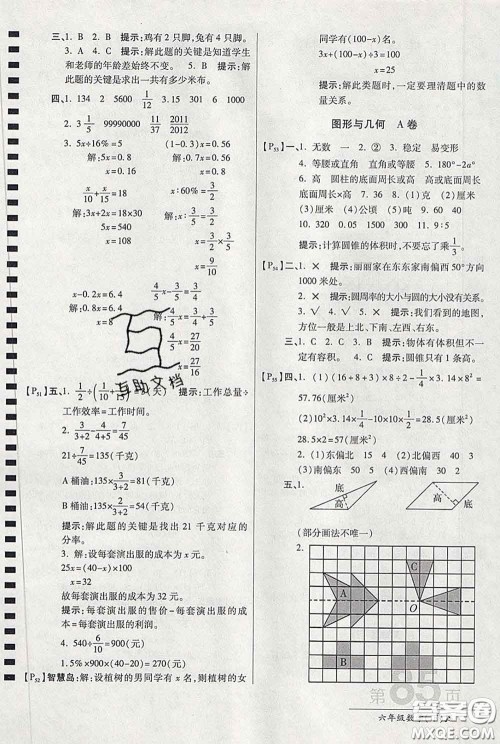 三、1. C 2. B 提示:鸡有2只脚,兔有4只脚。
3. A 4. C 提示:解此题的关键是知道学生
和老师的年龄差始终不变。 5. B 提示:解
此题的关键是求出一共有多少米布。
四、1. 134 2 5600 1/12 3.15 306 6 1000
2. 3 1/5 99900000 11/37 2011/2012
3. 5x÷16%=5 (1-0.3)x=0.56
解:5x=0.8 解:x=0.8
x/10+x/15=3 x:60%=3/2
解:3x+2x=18×5 解:x=9/10
x=18
x-0.2x=6.4 4/5x-3/5=3/4
解:0.8x=6.4 解:4/5x=27/20
x=8 x=27/16
【P51】五、1. 1/2÷(1/10+ 提示:工作总量÷
工作效率=工作时间。
2. 3/(3+2)-4/(5+4)=7/45
21÷7/45=135(千克)
A桶油:135×3/(3+2)=81(千克)
B桶油:135×2/(3+2)=54(千克)
提示:解此题的关键是找出21千克对应的
分率。
3. 解:设每套演出服的成本为x元。
25x=(40-x)×100
x=32
故每套演出服的成本为32元。
提示:每套演出服的售价-每套演出服的
成本=每套演出服的利润。
4. 540÷6/10=900(元)
1.5%×900×(40-20)=270(元)
【P52】智慧岛:解:设植树的男同学有x名,则植树的女
同学有
3x+
x=25
提示:解此类题时,一定要理清题中的数
量关系。
图形与几何 A卷
【P53】一、1. 无数 一 2. ② 3. 稳定 易变形
4. 等腰或直角 等腰或直角 5. 180°-2a°
6. 高 圆柱的底面周长或高 高或底面周长
底面周长×高 7. 36 8. (1)克 (2)厘米
(3)厘米 (4)公顷 (5)吨 9. 60 40
10. 320 0.05 1500 11. 15 9.42
提示:计算圆锥的体积时,不要忘了乘1/3。
【P54】二、1. × 提示:丽丽家在东东家南偏西50°方向
1000米处。
2. × 提示:圆周率的大小与圆的大小没有关系。
3. √ 4. √ 5. × 提示:我们看到的地图,
方向通常是上北下南、左西、右东。
三、1. C 2. C 3. B 提示:物体有体积但不一
定有容积。 4. B 提示:圆锥只有1条高。
【P55】四、1. (1)(16+8)×8÷2-1/2×3.14×8²=
57.76(厘米²)
(2)10²×3.14×1/4-10×10÷2=28.5(厘米²)
28.5×2=57(厘米²)
2. (1)东偏北
(3)南偏东 (4)西偏南
五、1.
底
高
底
高
(部分画法不唯一)
2.
A
B
C
O
第85页
六年级数
互助文档
答案圈
MXQE.COM